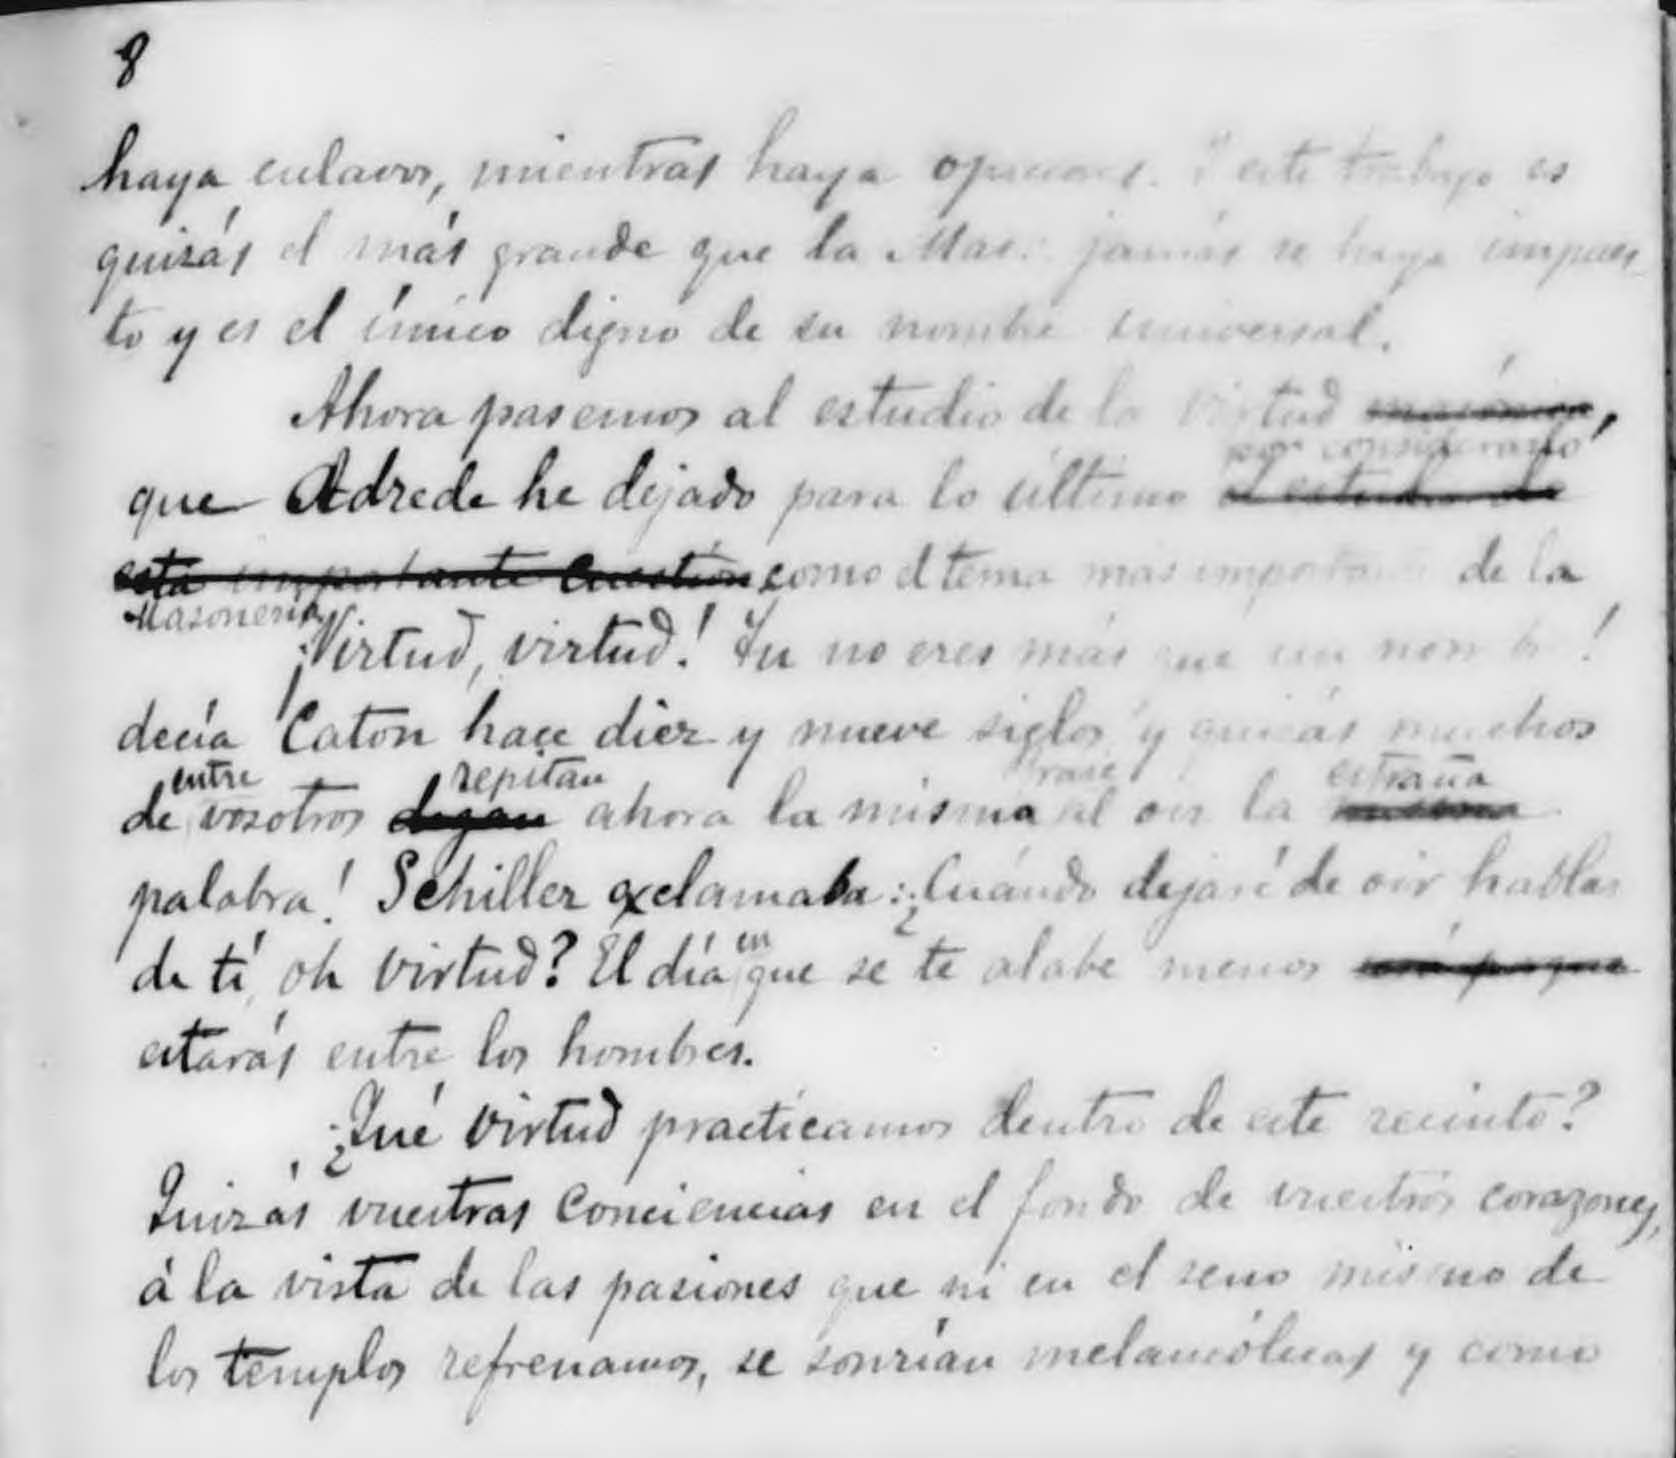 8
haya esclavos, mientras haya opresores. Y este trabajo es
quizás el más grande que la Mas∴ jamás se haya impues-
to y es el único digno de su nombre universal.
Ahora pasemos al estudio de la virtud masónica,
por considerarlo
que Adrede he dejado para lo último el estudio de
esta importante cuestión como el tema más importante de la
Masonería
¡Virtud, virtud! Tu no eres más que un nombre!
decía Catón hace diez y nueve siglos y quizás muchos
entre repitan frase estraña
de vosotros digan ahora la misma al oir la misma
palabra! Schiller exclamaba: ¿Cuándo dejaré de oir hablar
en
de tí, oh virtud? El día que se te alabe menos
estarás entre los hombres.
¿Qué virtud practicamos dentro de este recinto?
Quizás vuestras conciencias en el fondo de vuestros corazones,
á la vista de las pasiones que ni en el seno mismo de
los templos refrenamos, se sonrían melancólicas y como